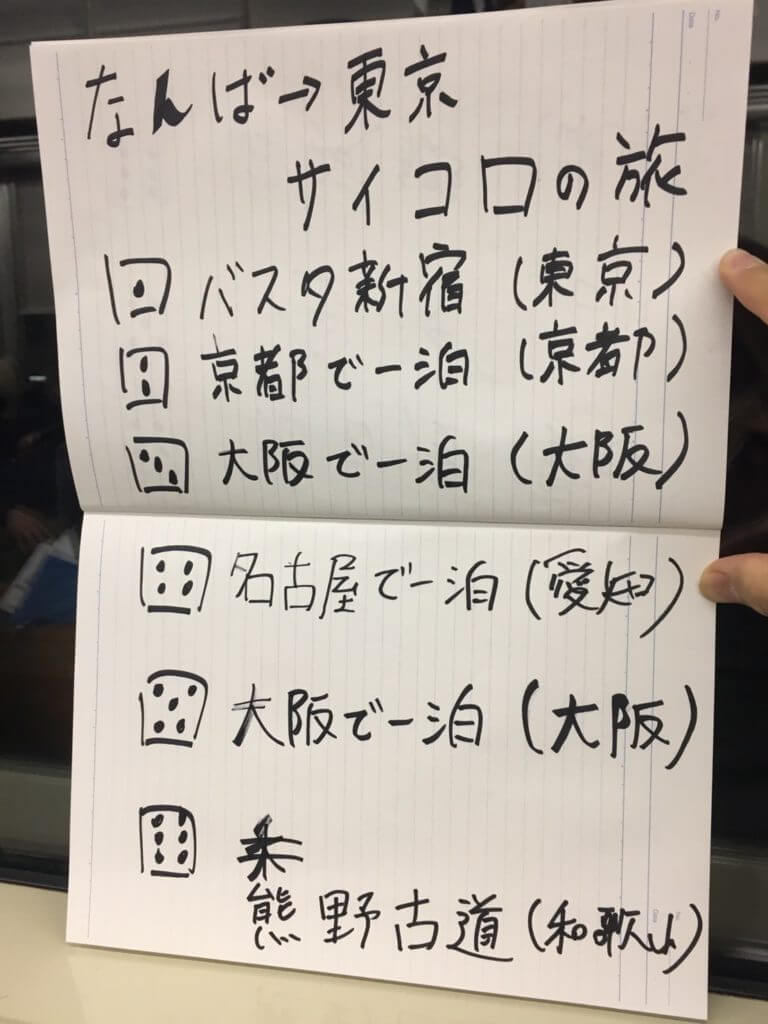 なんば→東京
サイコロの旅
⚀ バスタ新宿 (東京)
⚁ 京都で一泊 (京都)
⚂ 大阪で一泊 (大阪)
⚃ 名古屋で一泊 (愛知)
⚄ 大阪で一泊 (大阪)
⚅
熊野古道 (和歌山)